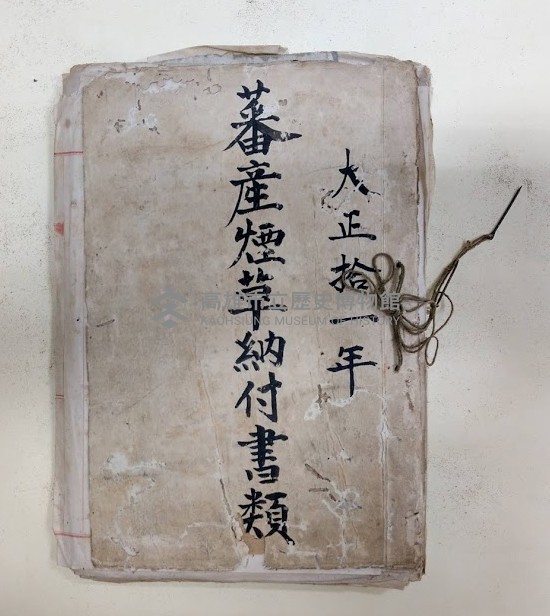 大正拾 年
蕃産煙草納付書類
高雄市立歷史博物館
KAOHSIUNG MUSEUM OF HISTORY